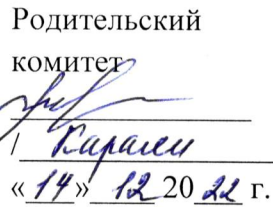 Родительский
комитет
/
«14» 12 20 22 г.